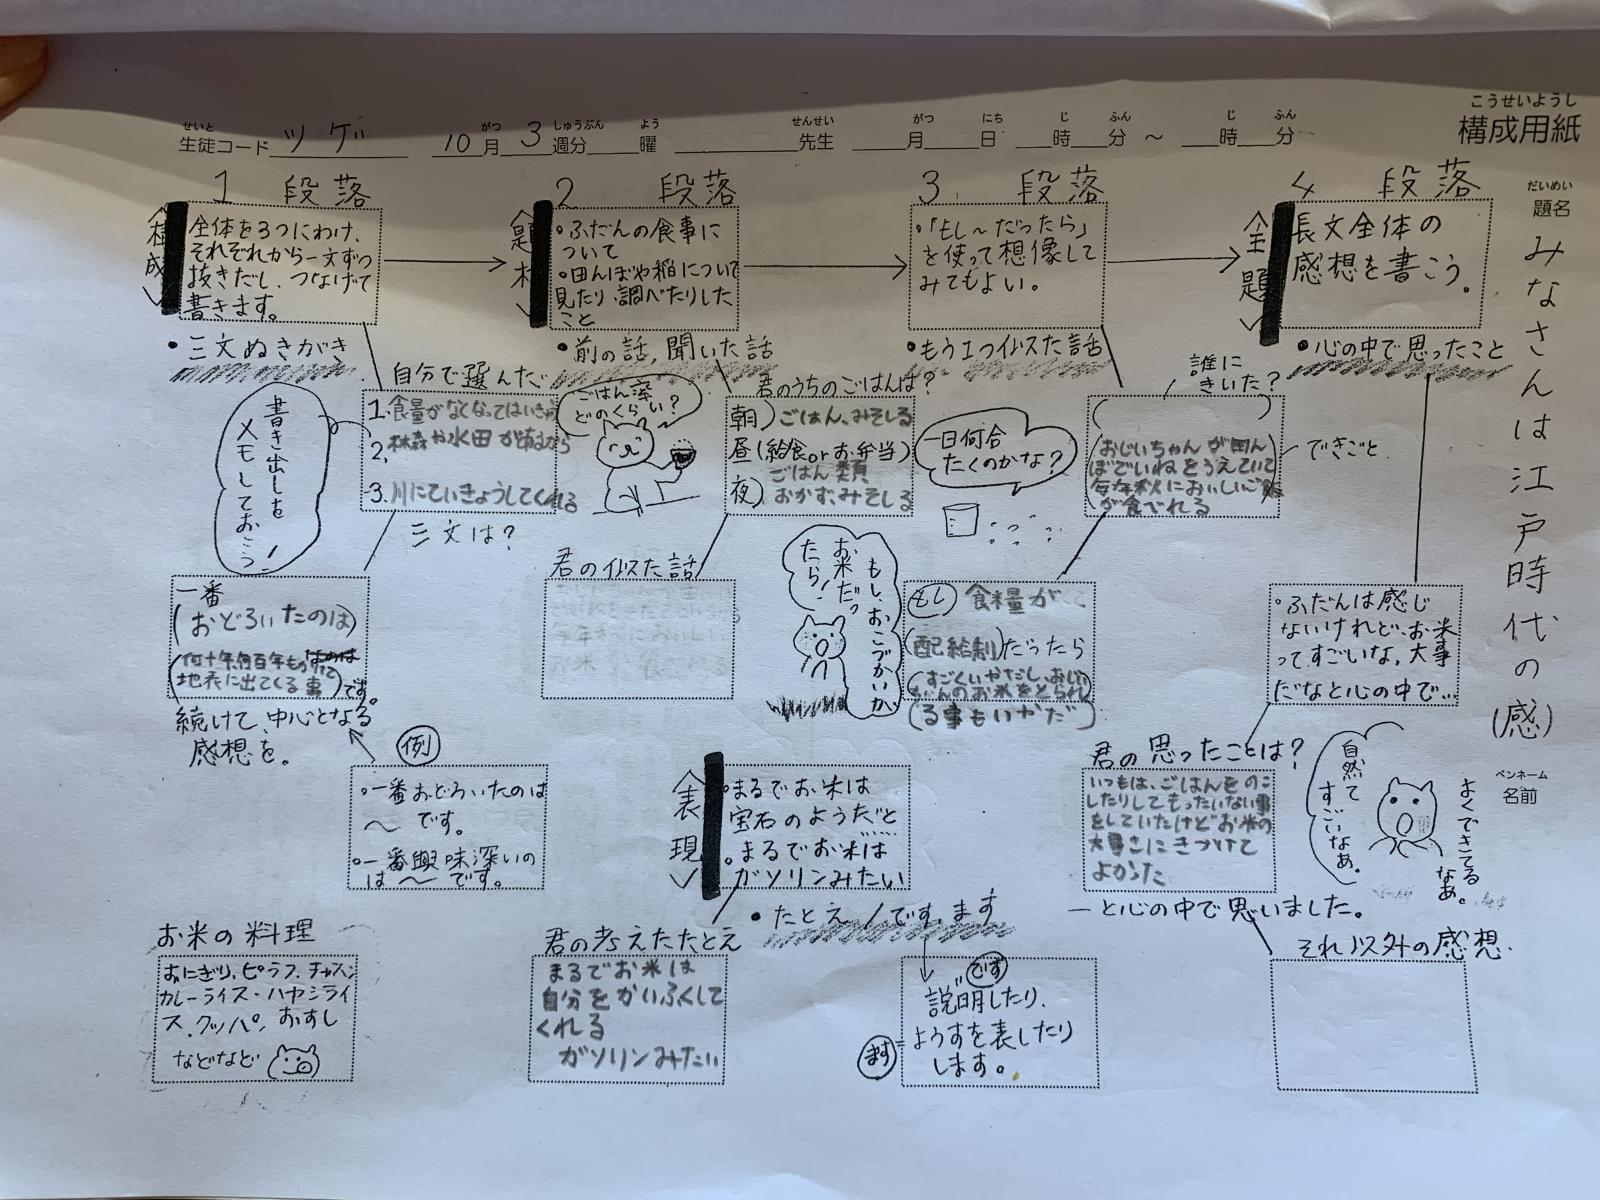 こうせいようし
構成用紙
せいと がつ しゅうぶん よう せんせい がつ にち じ ふん じ ふん
生徒コード ツゲ 10月3週分 曜 先生 月 日 時 分 〜 時 分
だいめい
題名
みなさんは江戸時代の(感)
ペンネーム
名前
1 段落
全体を3つにわけ、
それぞれから一文ずつ
抜きだし、つなげて
書きます。
・三文ぬきがき
書き出しを
メモしておこう!
自分で選んだ
1.食量がなくなってはいきゅう
2.林森や水田があるから
3.川にていきょうしてくれる
三文は?
一番
(おどろいたのは)
(何十年何百年もかけて
地表に出てくる事)です。
続けて、中心となる
感想を。
例
・一番おどろいたのは
〜です。
・一番興味深いの
は〜です。
お米の料理
おにぎり、ピラフ、チャーハン
カレーライス・ハヤシライ
ス、クッパ、おすし
などなど
2 段落
☆題材✓
・ふだんの食事に
ついて
・田んぼや稲について
見たり、調べたりした
こと
・前の話,聞いた話
ごはん率
どのくらい?
君のうちのごはんは?
朝)ごはん、みそしる
昼(給食orお弁当)
ごはん類
夜)おかず、みそしる
君の似た話
もし、おこづかいが
お米だっ
たら!
☆表現✓
・まるでお米は
宝石のようだと
・まるでお米は
ガソリンみたい
・たとえ/です、ます
君の考えたたとえ
まるでお米は
自分をかいふくして
くれる
ガソリンみたい
です
説明したり、
ます
ようすを表したり
します。
3 段落
・「もし〜だったら」
を使って想像して
みてもよい。
・もう1つ似た話
一日何合
たくのかな?
誰に
きいた?
( )
(おじいちゃんが田ん
ぼでいねをうえていて
毎年秋においしいご飯
が食べれる)
できごと
もし 食糧が
(配給制)だったら
(すごくいやだし、おじい
ちゃんのお米をとられ
(る事もいやだ)
4 段落
☆主題✓
長文全体の
感想を書こう。
・心の中で思ったこと
・ふだんは感じ
ないけれど、お米
ってすごいな、大事
だなと心の中で…
君の思ったことは?
いつもは、ごはんをのこ
したりしてもったいない事
をしていたけどお米の
大事さにきづけて
よかった
ーと心の中で思いました。
自然て
すごいなあ。
よくできてる
なあ。
それ以外の感想